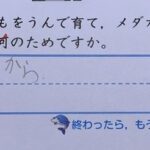 もをうんで育て，メダカ
何のためですか。
から
終わったら，もう